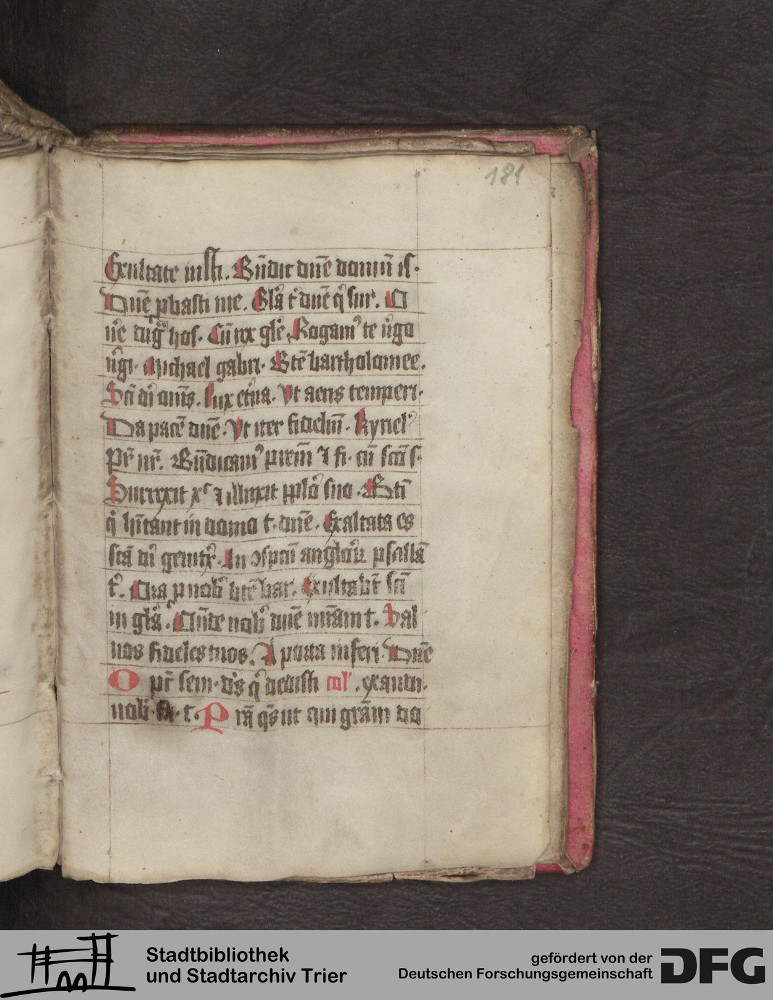 181
Exultate iusti. Bn̄dic dn̄e domū is.
Dn̄e ꝓbasti me. Glā t' dn̄e q' sur. D
n̄e dūg hos. Cū rex glē. Rogam' te v̄go
v̄gi. Michael gabri. Btē bartholomee.
Sc̄i dī om̄s. Lux et̄na. Vt aeris temperi.
Da pacē dn̄e. Vt iter fideliū. Kyriel'
Pr̄ nr̄. Bn̄dicam' prem̄ ⁊ fi. cū scō s.
Surrexit xp̄c ⁊ illuxit pplō suo. Bt̄i
q̄ hītant in domo t. dn̄e. Exaltata es
scā dī genit̄x. In ɔspcū angloꝝ psallā
t'. Ora p nob' btē bar. Exultabt̄ scī
in glā. On̄de nob' dn̄e mīam t. Sal
uos fideles tuos. A porta inferi. Dn̄e
O pr̄ sem. ds̄ q' dedisti col'. exaudi.
nob̄ t. Prā qs̄ ut qui grām do
Stadtbibliothek
und Stadtarchiv Trier
gefördert von der
Deutschen Forschungsgemeinschaft
DFG